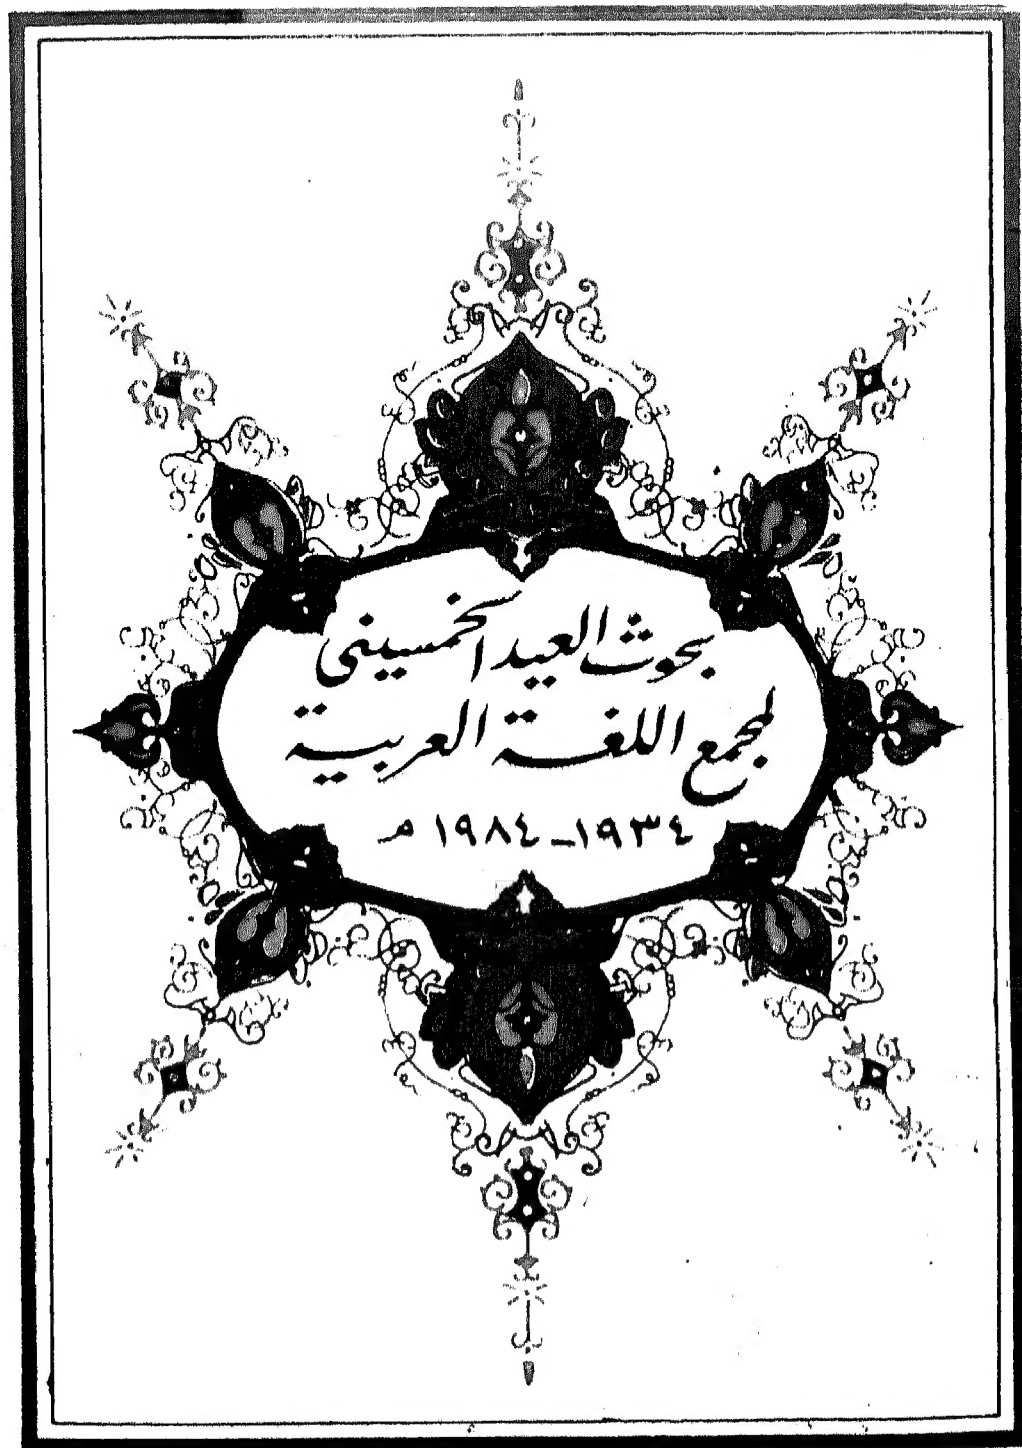 بحوث العيد الخمسيني
لمجمع اللغة العربية
١٩٣٤-١٩٨٤ م